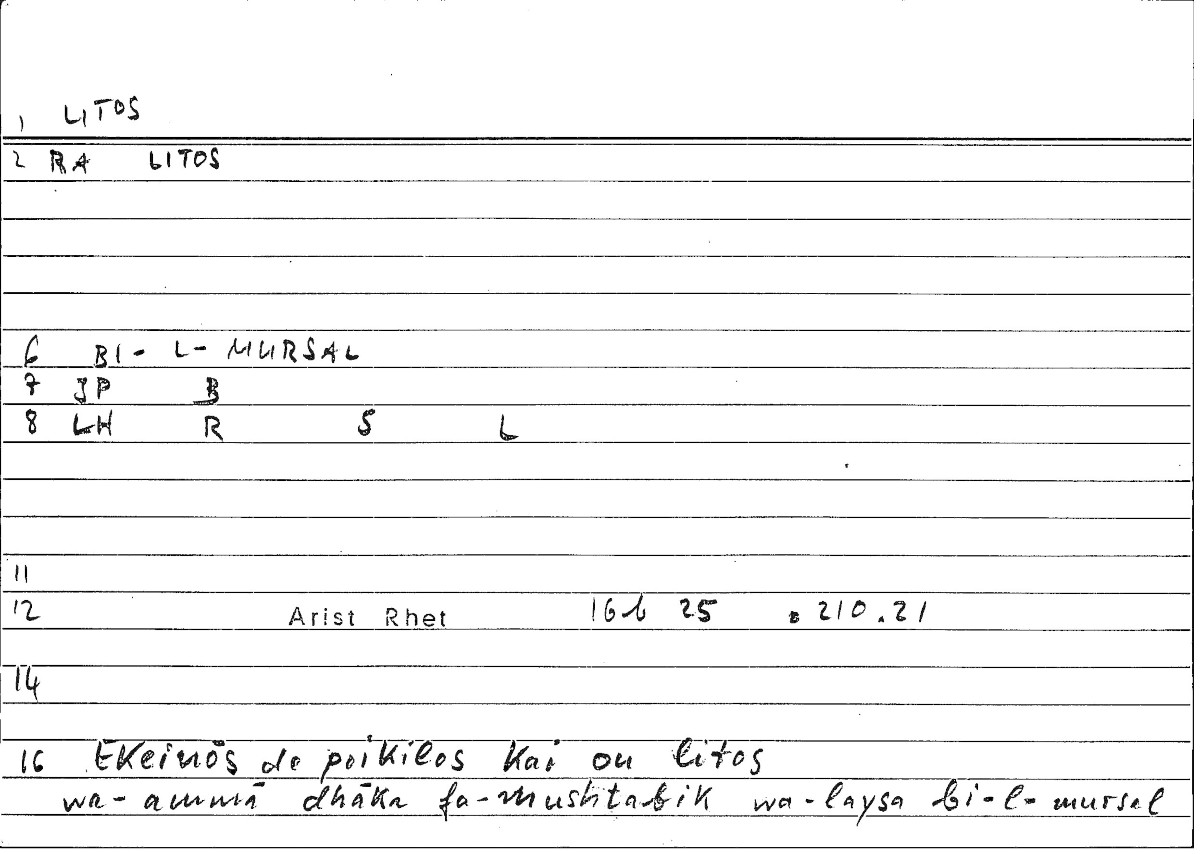 1 LITOS
2 RA LITOS
6 BI- L- MURSAL
7 JP B
8 LH R S L
11
12 Arist Rhet 16b 25 210.21
14
16 Ekeinōs de poikilos kai ou litos
wa-ammā dhāka fa-mushtabik wa-laysa bi-l-mursal